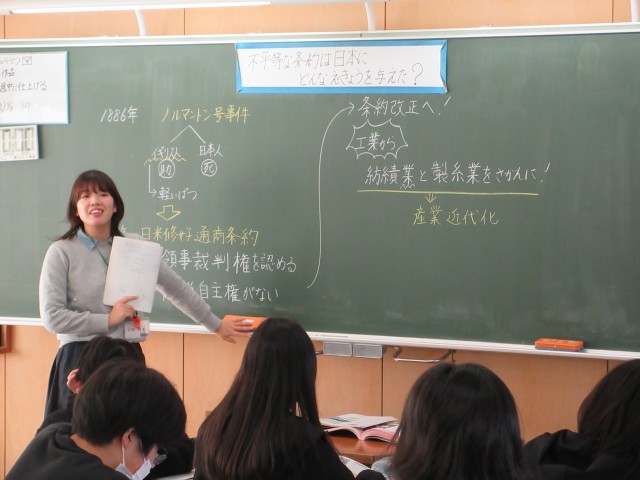 不平等な条約は日本に
どんなえいきょうを与えた?
作品
1886年 ノルマントン号事件
イギリス 日本人
助 死
軽いばつ
日米修好通商条約
領事裁判権を認める
自主権がない
条約改正へ!
工業から
紡績業と製糸業をさかんに!
産業近代化